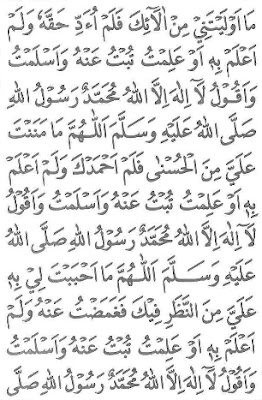 مَا اَوْلَيْتَنِيْ مِنْ اٰلَائِكَ فَلَمْ اُءَدِّ حَقَّهٗ وَلَمْ
اَعْلَمْ بِهٖ اَوْ عَلِمْتُ تُبْتُ عَنْهُ وَاَسْلَمْتُ
وَاَقُوْلُ لَآ اِلٰهَ اِلَّا اللهُ مُحَمَّدٌ رَسُوْلُ اللهِ
صَلَّى اللهُ عَلَيْهِ وَسَلَّمَ اَللّٰهُمَّ مَا مَنَنْتَ
عَلَيَّ مِنَ الْحُسْنٰى فَلَمْ اَحْمَدْكَ وَلَمْ اَعْلَمْ
بِهٖ اَوْ عَلِمْتُ تُبْتُ عَنْهُ وَاَسْلَمْتُ وَاَقُوْلُ
لَآ اِلٰهَ اِلَّا اللهُ مُحَمَّدٌ رَسُوْلُ اللهِ صَلَّى اللهُ
عَلَيْهِ وَسَلَّمَ اَللّٰهُمَّ مَا اَحْبَبْتَ لِيْ بِهٖ
عَلَيَّ مِنَ النَّظَرِ فِيْكَ فَغَمَضْتُ عَنْهُ وَلَمْ
اَعْلَمْ بِهٖ اَوْ عَلِمْتُ تُبْتُ عَنْهُ وَاَسْلَمْتُ
وَاَقُوْلُ لَآ اِلٰهَ اِلَّا اللهُ مُحَمَّدٌ رَسُوْلُ اللهِ صَلَّى